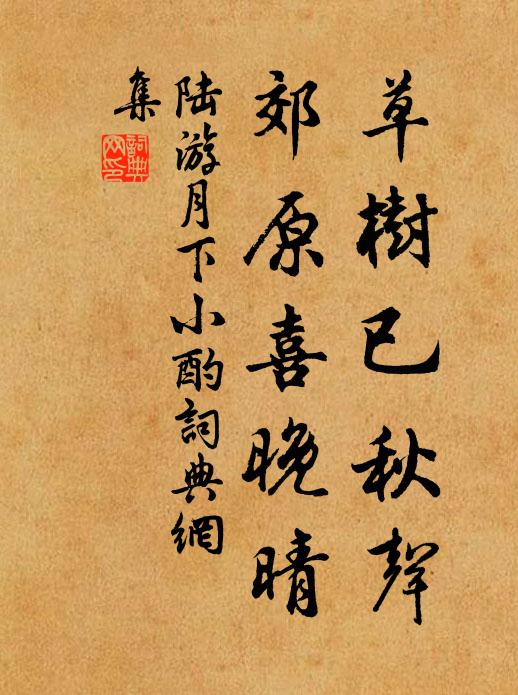 草樹已秋聲
郊原喜晚晴
陸游月下小酌詞典網
集
詞典
网印